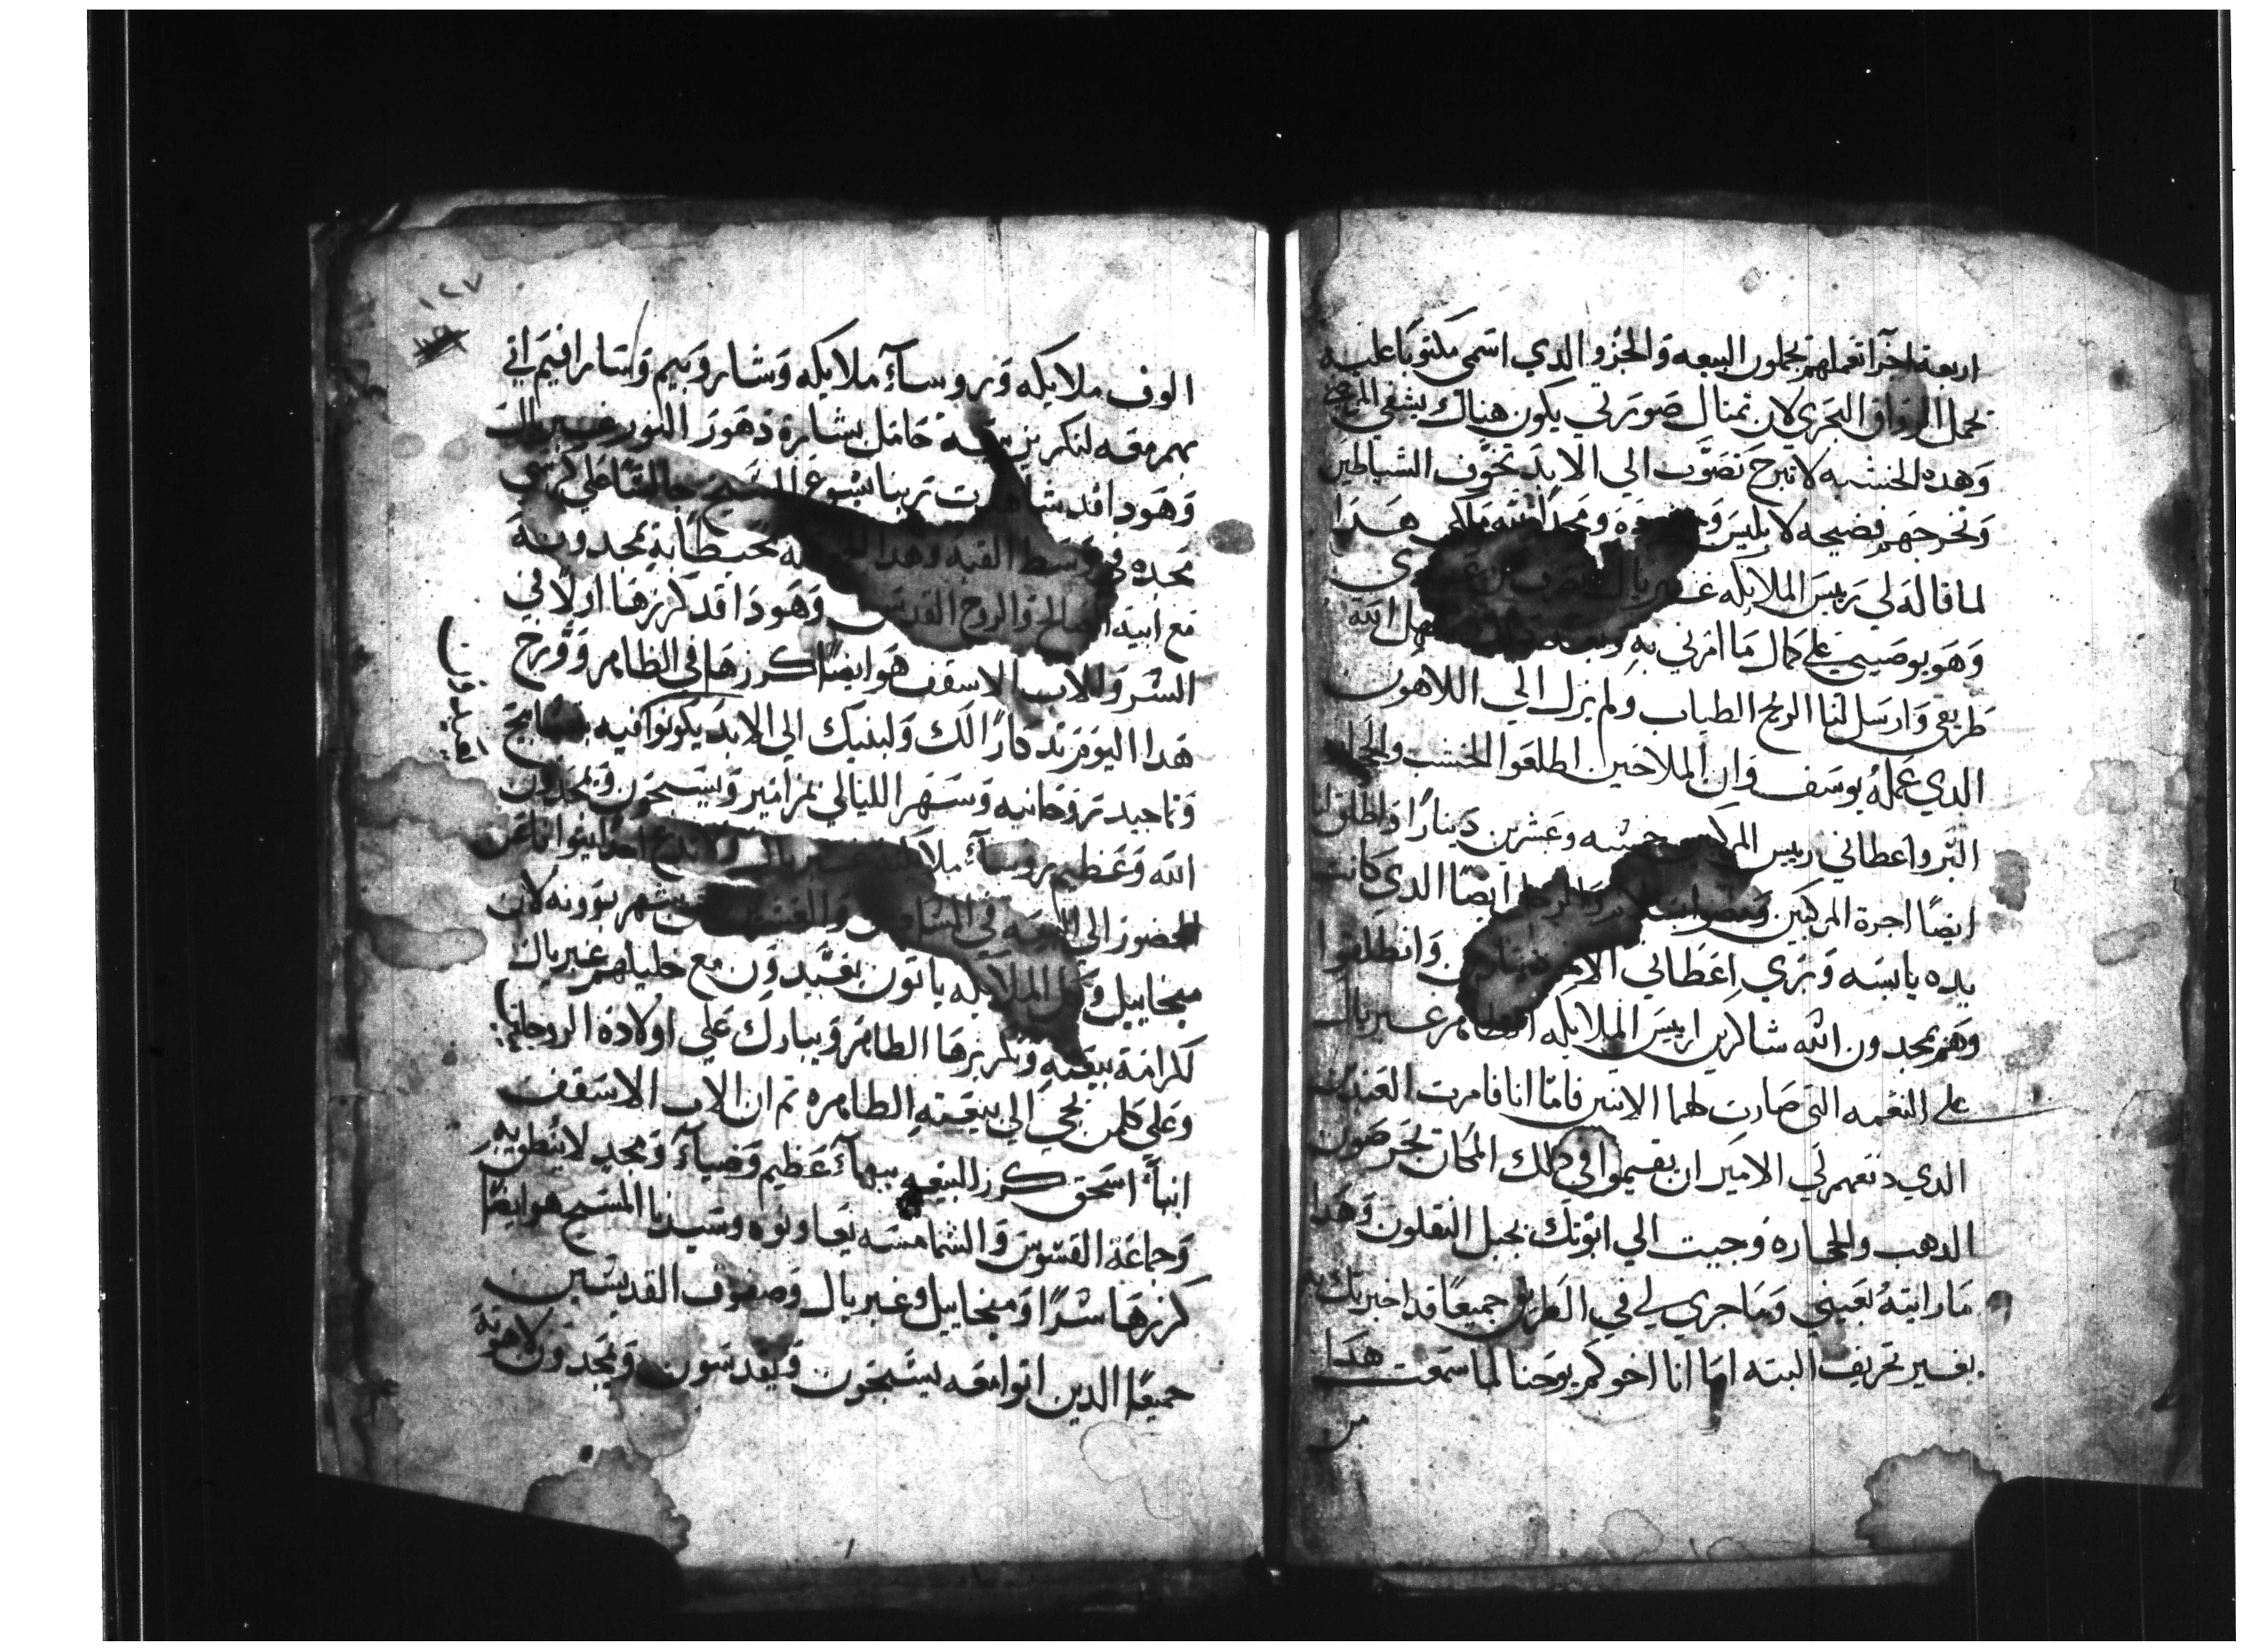 اربعة اخر اتعملهم يحملون البيعه والجزو الذي اسمي مكتوبًا عليه
تحمل الرواق البحري لان تمثال صورتي يكون هناك يشفي المرضي
وهده الخشبه لا تبرح تصوّب الي الابد تخوف الشياطين
وتخرجهم فضيحه لابليس ومجدًا لله ملكي هدا
لما قاله لي رييس الملايكه غبريال
وهو يوصيني علي كمال ما امرني به الله
طريقي وارسل لنا الريح الطياب ولم نزل الي اللاهون
الدي عمله يوسف وان الملاحين اطلعوا الخشب والحجاره
البر واعطاني رييس المركب خشبه وعشرين دينارًا واطلق لنا
ايضًا اجرة المركبين والرجل ايضًا الدي كانت
يده يابسه وبري اعطاني الاخر وانطلقوا
وهم يمجدون الله شاكرين لرييس الملايكه الطاهر غبريال
علي النعمه التي صارت لهما الاتنين فامّا انا فامرت العبيد
الدي دفعهم لي الامير ان يقيموا في دلك المكان يحرصون
الدهب والحجاره وجيت الي ابوتك بجبل النقلون وهدا
ما رايته بعيني وما جري لي في الطريق جميعًا قد اخبرتك به
بغير تحريف البته اما انا اخوكم يوحنا لما سمعت هدا
من
١٢٧
الوف ملايكه وروساء ملايكه وشاروبيم وسارافيم اتي
بهم معه لتكريز بيعة حامل بشارة دهور النور غبريال
وهودا قد شاهدت ربنا يسوع المسيح جالسًا علي كرسي
مجده في وسط القبه وهدا تحيط به يمجدونه
مع ابيه الصالح والروح القدس وهودا قد كرزها اولًا في
السر والاب الاسقف هو ايضًا كرزها في الظاهر وفرح
هدا اليوم تدكارًا لك ولبنيك الي الابد يكونوا فيه بتسابيح
وتماجيد روحانيه وسهر الليالي بمزامير ويسبحون ويمجدون
الله وعظيم روساء ملايكته غبريال
الحضور الي البيعه في السادس والعشرين من شهر بوونه لان
ميخاييل وكل الملايكه ياتون يعيّدون مع خليلهم غبريال
كرامة بيعته وتكريزها الطاهر ويبارك علي اولاده الروحانيين
وعلي كلمن يجي الي بيعته الطاهره تم ان الاب الاسقف
انبا اسحق كرز البيعه ببهاء عظيم وضياء ومجد لا ينطق به
وجماعة القسوس والشمامسه يعاونوه وسيدنا المسيح هو ايضًا
كرزها سرًا وميخاييل وغبريال وصفوف القديسين
جميعًا الدين اتوا معه يسبحون ويقدسون ويمجدون لاهوته